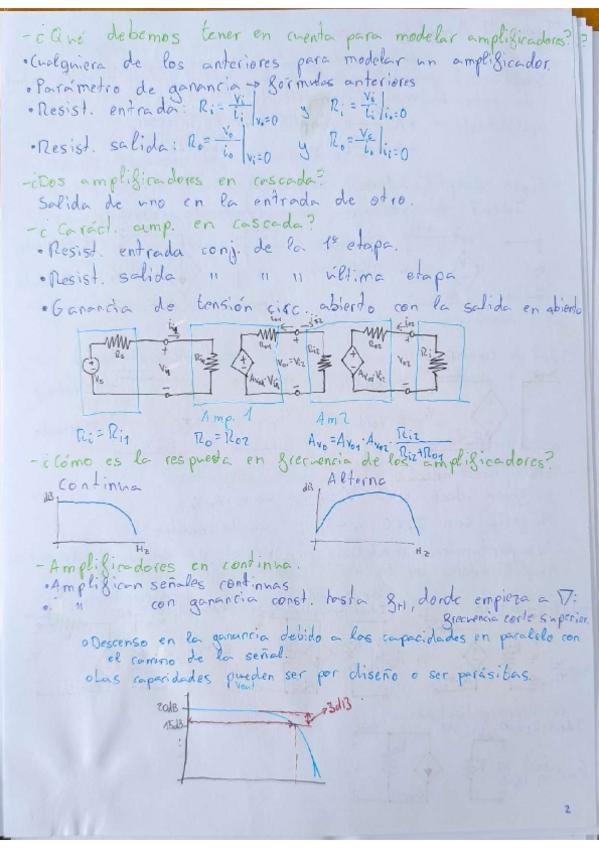 -¿Qué debemos tener en cuenta para modelar amplificadores?
• Cualquiera de los anteriores para modelar un amplificador.
• Parámetro de ganancia → fórmulas anteriores
• Resist. entrada: Ri = Vi/ii |Vo=0 y Ri = Vi/ii |io=0
• Resist. salida: Ro = Vo/io |Vi=0 y Ro = Vo/io |ii=0
-¿Dos amplificadores en cascada?
Salida de uno en la entrada de otro.
-¿Caráct. amp. en cascada?
• Resist. entrada conj. de la 1ª etapa.
• Resist. salida " " " última etapa
• Ganancia de tensión circ. abierto con la salida en abierto
Vs Rs Vi1 ii1 Ri1 Av01·Vi1 Ro1 io1 ii2 Vo1=Vi2 Ri2 Av02·Vi2 Ro2 io2 Vo2 Ri
Amp. 1 Am2
Ri = Ri1 Ro = Ro2 Av0 = Av01 · Av02 · Ri2/(Ri2+Ro1)
-¿Cómo es la respuesta en frecuencia de los amplificadores?
Continua Alterna
dB Hz dB Hz
- Amplificadores en continua.
• Amplifican señales continuas
• " con ganancia const. hasta fH, donde empieza a ∇:
frecuencia corte superior.
o Descenso en la ganancia debido a las capacidades en paralelo con
el camino de la señal.
o Las capacidades pueden ser por diseño o ser parásitas.
20dB
3dB
15dB
2